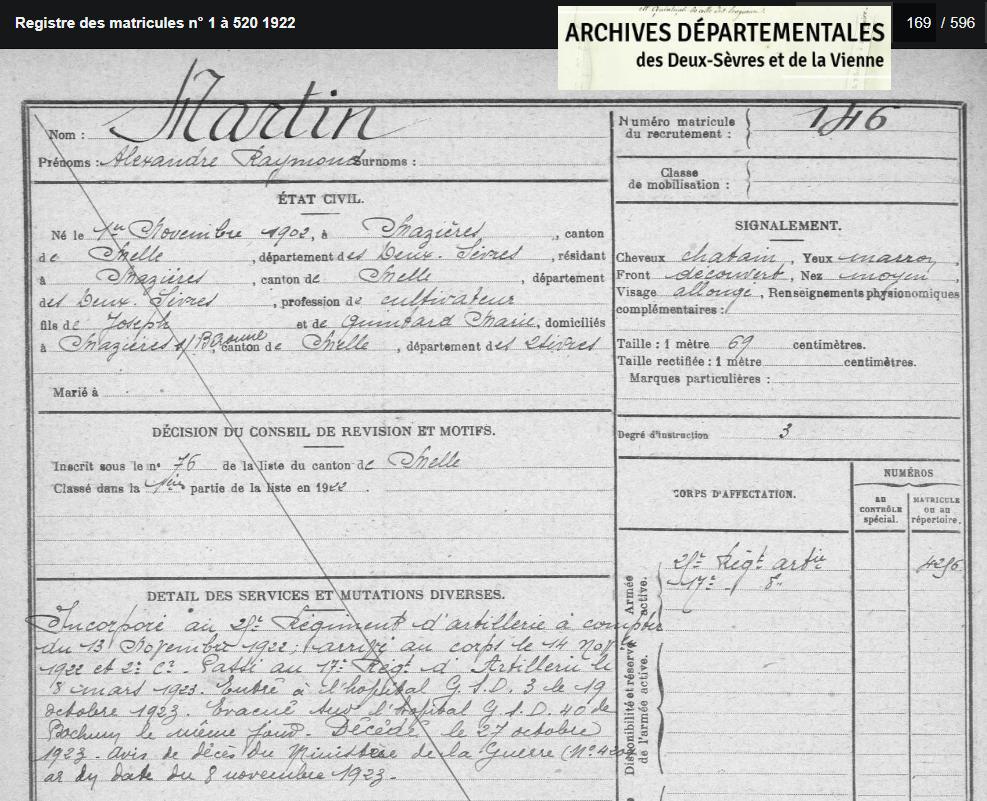 Registre des matricules n° 1 à 520 1922
ARCHIVES DÉPARTEMENTALES
des Deux-Sèvres et de la Vienne
169 / 596
Nom : Martin
Prénoms : Alexandre Raymond Surnoms :
ÉTAT CIVIL.
Né le 1er Novembre 1902, à Mazières, canton
de Melle, département des Deux-Sèvres, résidant
à Mazières, canton de Melle, département
des Deux-Sèvres, profession de cultivateur
fils de Joseph et de Quintard Marie, domiciliés
à Mazières s/ Béronne, canton de Melle, département des 2 Sèvres
Marié à
DÉCISION DU CONSEIL DE REVISION ET MOTIFS.
Inscrit sous le n° 76 de la liste du canton de Melle
Classé dans la 1ère partie de la liste en 1922.
DETAIL DES SERVICES ET MUTATIONS DIVERSES.
Incorporé au Régiment d'artillerie à compter
du 13 Novembre 1922; arrivé au corps le 14 Nov
1922 et 2e Cr. Passé au 17e Régt d'Artillerie le
8 mars 1923. Entré à l'hopital G.S.D. 3 le 19
octobre 1923. Evacué sur l'hopital G.S.D. 40 de
le même jour. Décédé le 27 octobre
1923. avis de décès du Ministère de la Guerre (N°
du 8 novembre 1923.
Numéro matricule
du recrutement : 146
Classe
de mobilisation :
SIGNALEMENT.
Cheveux chatain, Yeux marron,
Front découvert, Nez moyen,
Visage allongé, Renseignements physionomiques
complémentaires :
Taille : 1 mètre 69 centimètres.
Taille rectifiée : 1 mètre centimètres.
Marques particulières :
Degré d'instruction 3
CORPS D'AFFECTATION.
NUMÉROS
AU
CONTRÔLE
spécial.
MATRICULE
OU AU
répertoire.
Armée
active.
Régt artie 4296
17e
Disponibilité et réserve
de l'armée active.